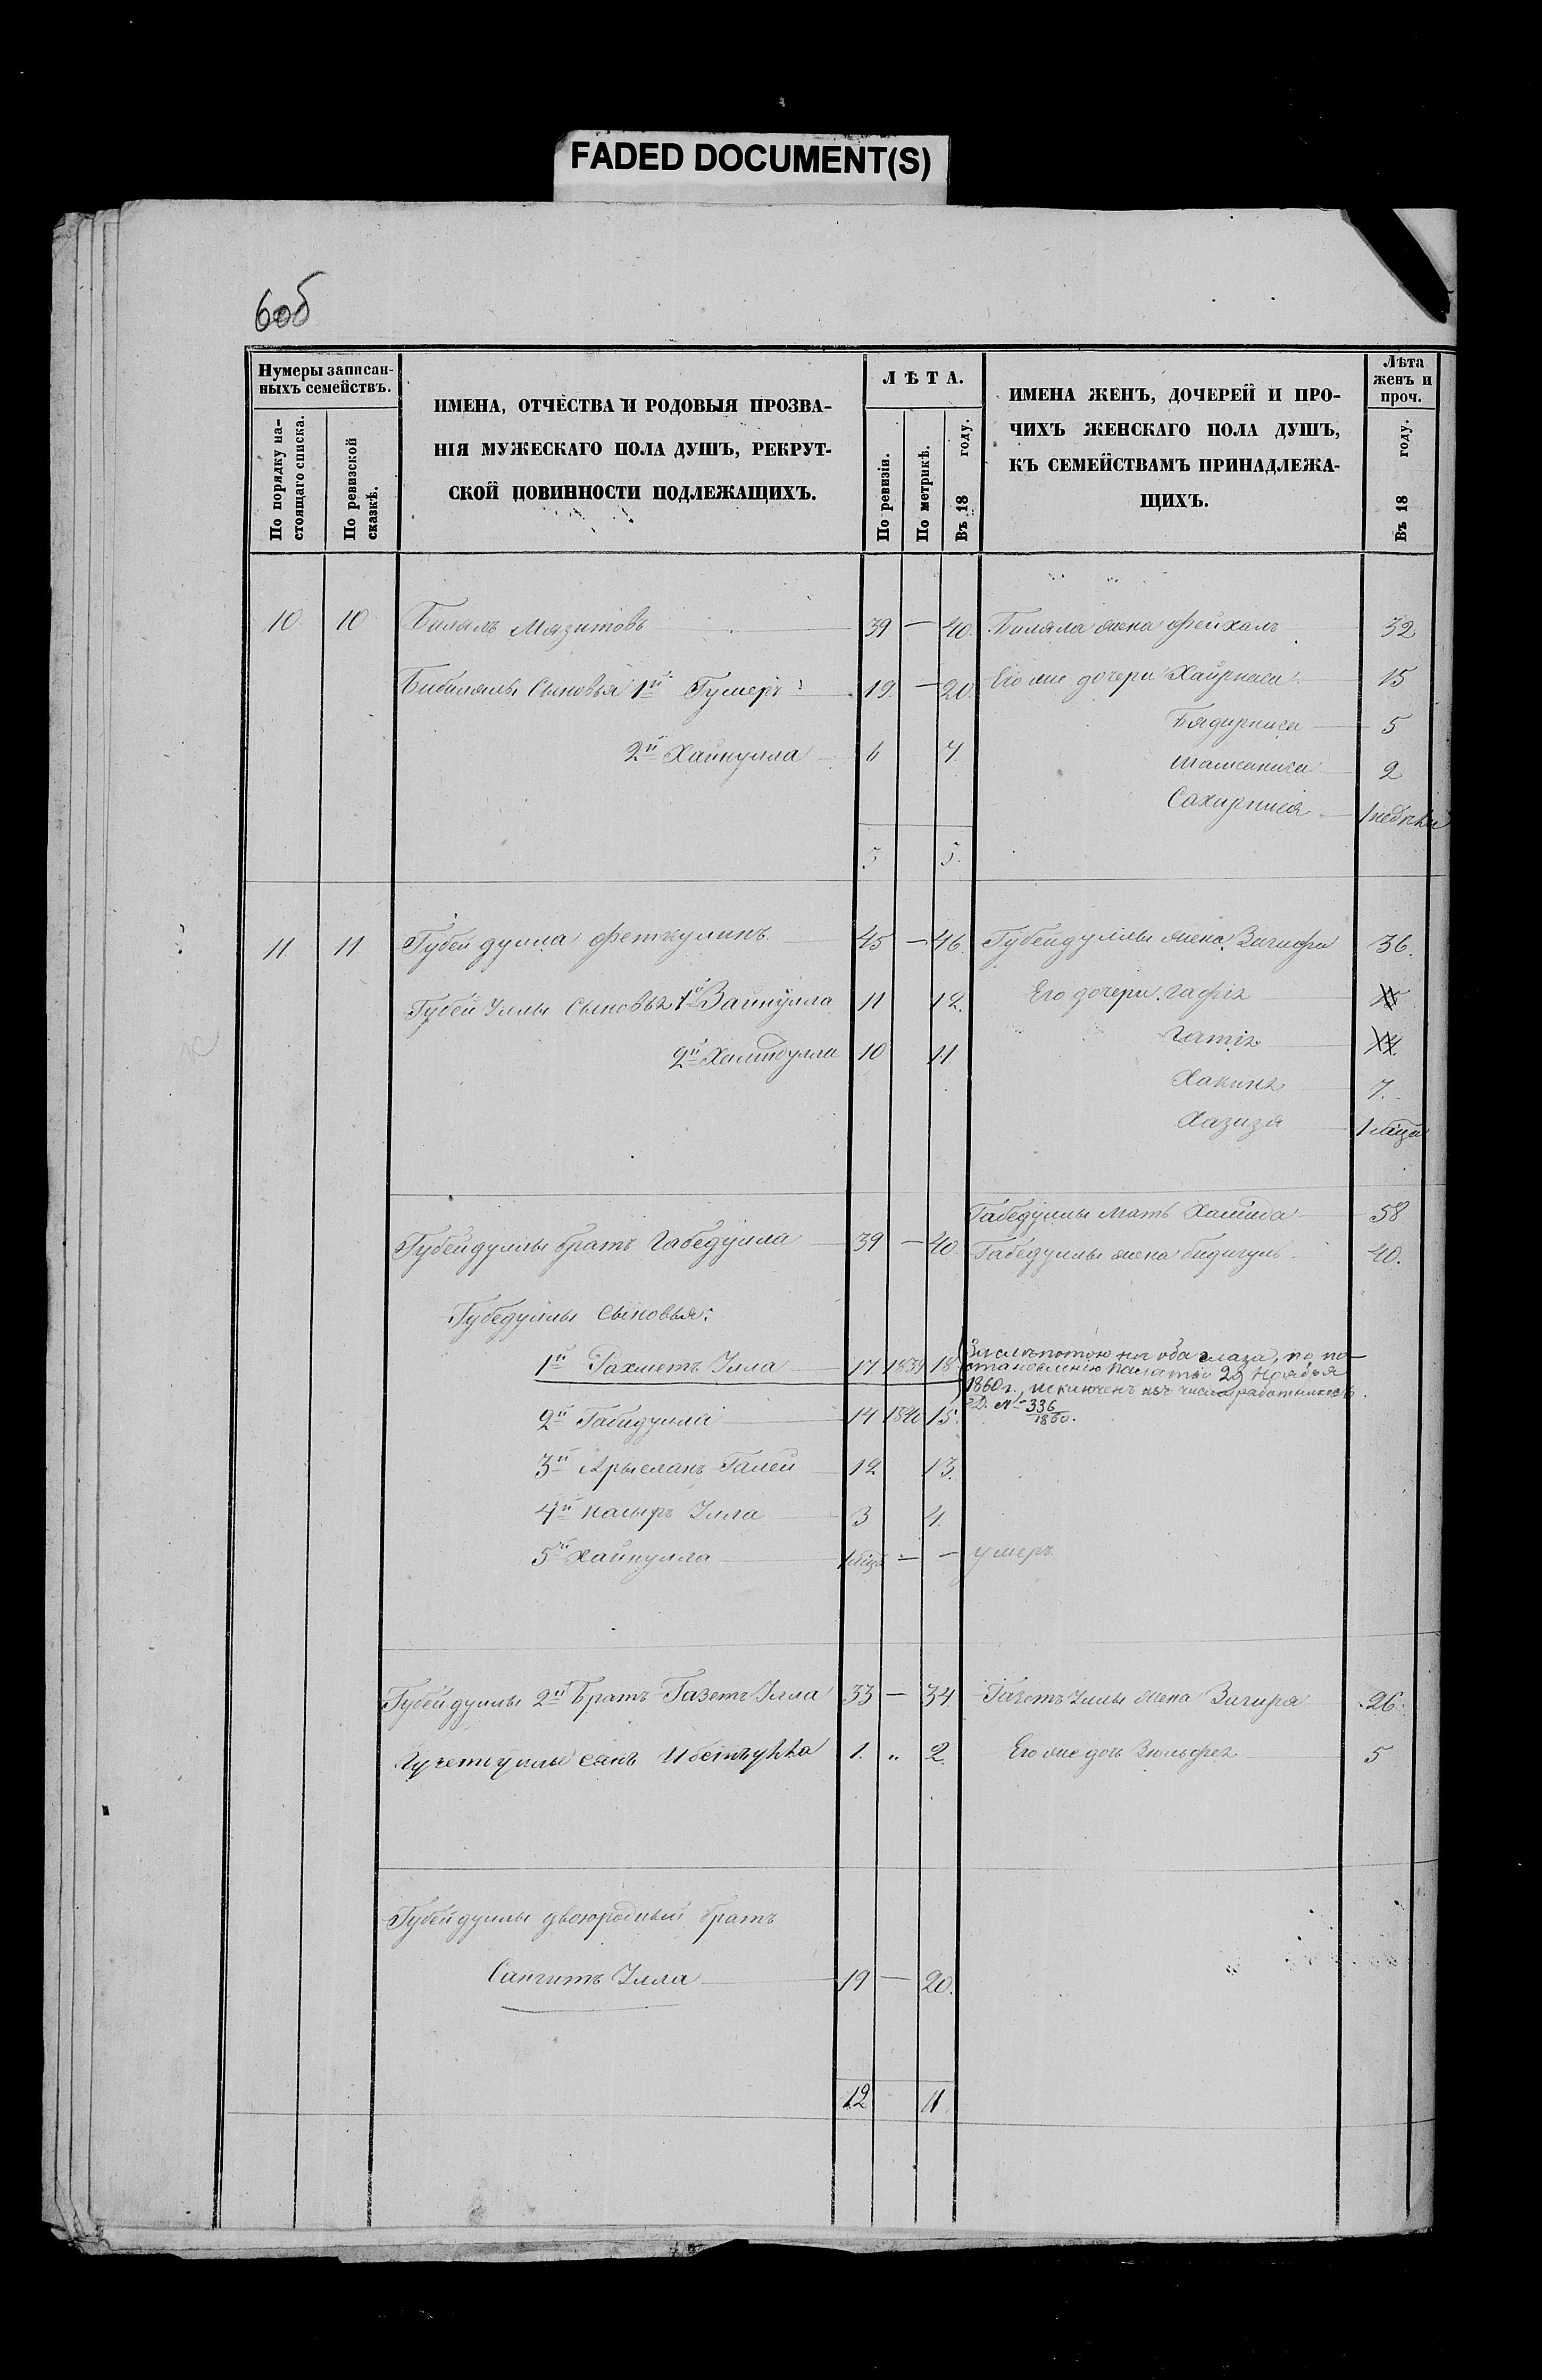 FADED DOCUMENT(S)
6об
Нумеры записан-
ныхъ семействъ.
По порядку на-
стоящаго списка.
По ревизской
сказкѣ.
ИМЕНА, ОТЧЕСТВА И РОДОВЫЯ ПРОЗВА-
НІЯ МУЖЕСКАГО ПОЛА ДУШЪ, РЕКРУТ-
СКОЙ ПОВИННОСТИ ПОДЛЕЖАЩИХЪ.
ЛѢТА.
По ревизіи.
По метрикѣ.
Въ 18 году.
ИМЕНА ЖЕНЪ, ДОЧЕРЕЙ И ПРО-
ЧИХЪ ЖЕНСКАГО ПОЛА ДУШЪ,
КЪ СЕМЕЙСТВАМЪ ПРИНАДЛЕЖА-
ЩИХЪ.
Лѣта
женъ и
проч.
Въ 18 году.
10 10 Билялъ Мязитовъ 39 — 40. Биляла жена Фейхалъ 32
Сыновья 1й Гумеръ 19. — 20. Его же дочери Хайрниса 15
Бядирниса 5
2й Хайнулла 6 7.
2
Сахирниса 1 недѣли
5 5.
11 11 Губейдулла Феткулинъ 45 — 46. Губейдуллы жена Загифа 36.
Губейдуллы Сыновья 1й Зайнулла 11 12. Его дочери Гафія
2й Халибулла 10 11 Гатія
Хакима 7.
Хазиза 1 мѣца
Габедуллы мать Хамида 58
Губейдуллы братъ Габедулла 39 — 40. Габедуллы жена Бидигуль 40.
Губедуллы Сыновья:
1й Рахметъ Улла 17. 1839 18 За слѣпотою на оба глаза, по по-
становленію Палаты 29 Ноября
1860 г., исключенъ изъ числа работниковъ.
Д. № 336/1860.
2й Габидулла 14 1840 15.
3й Арысланъ Галей 12 13.
4й Насыръ Улла 3 4.
5й Хайнулла 1 мѣца — — умеръ.
Губейдуллы 2й Братъ Газетъ Улла 33 — 34. Газетъ Уллы жена Загира 26.
сынъ 1. „ 2. Его же дочь Зюльфея 5
Губейдуллы двоюродный братъ
Сангитъ Улла 19 — 20.
12 11.